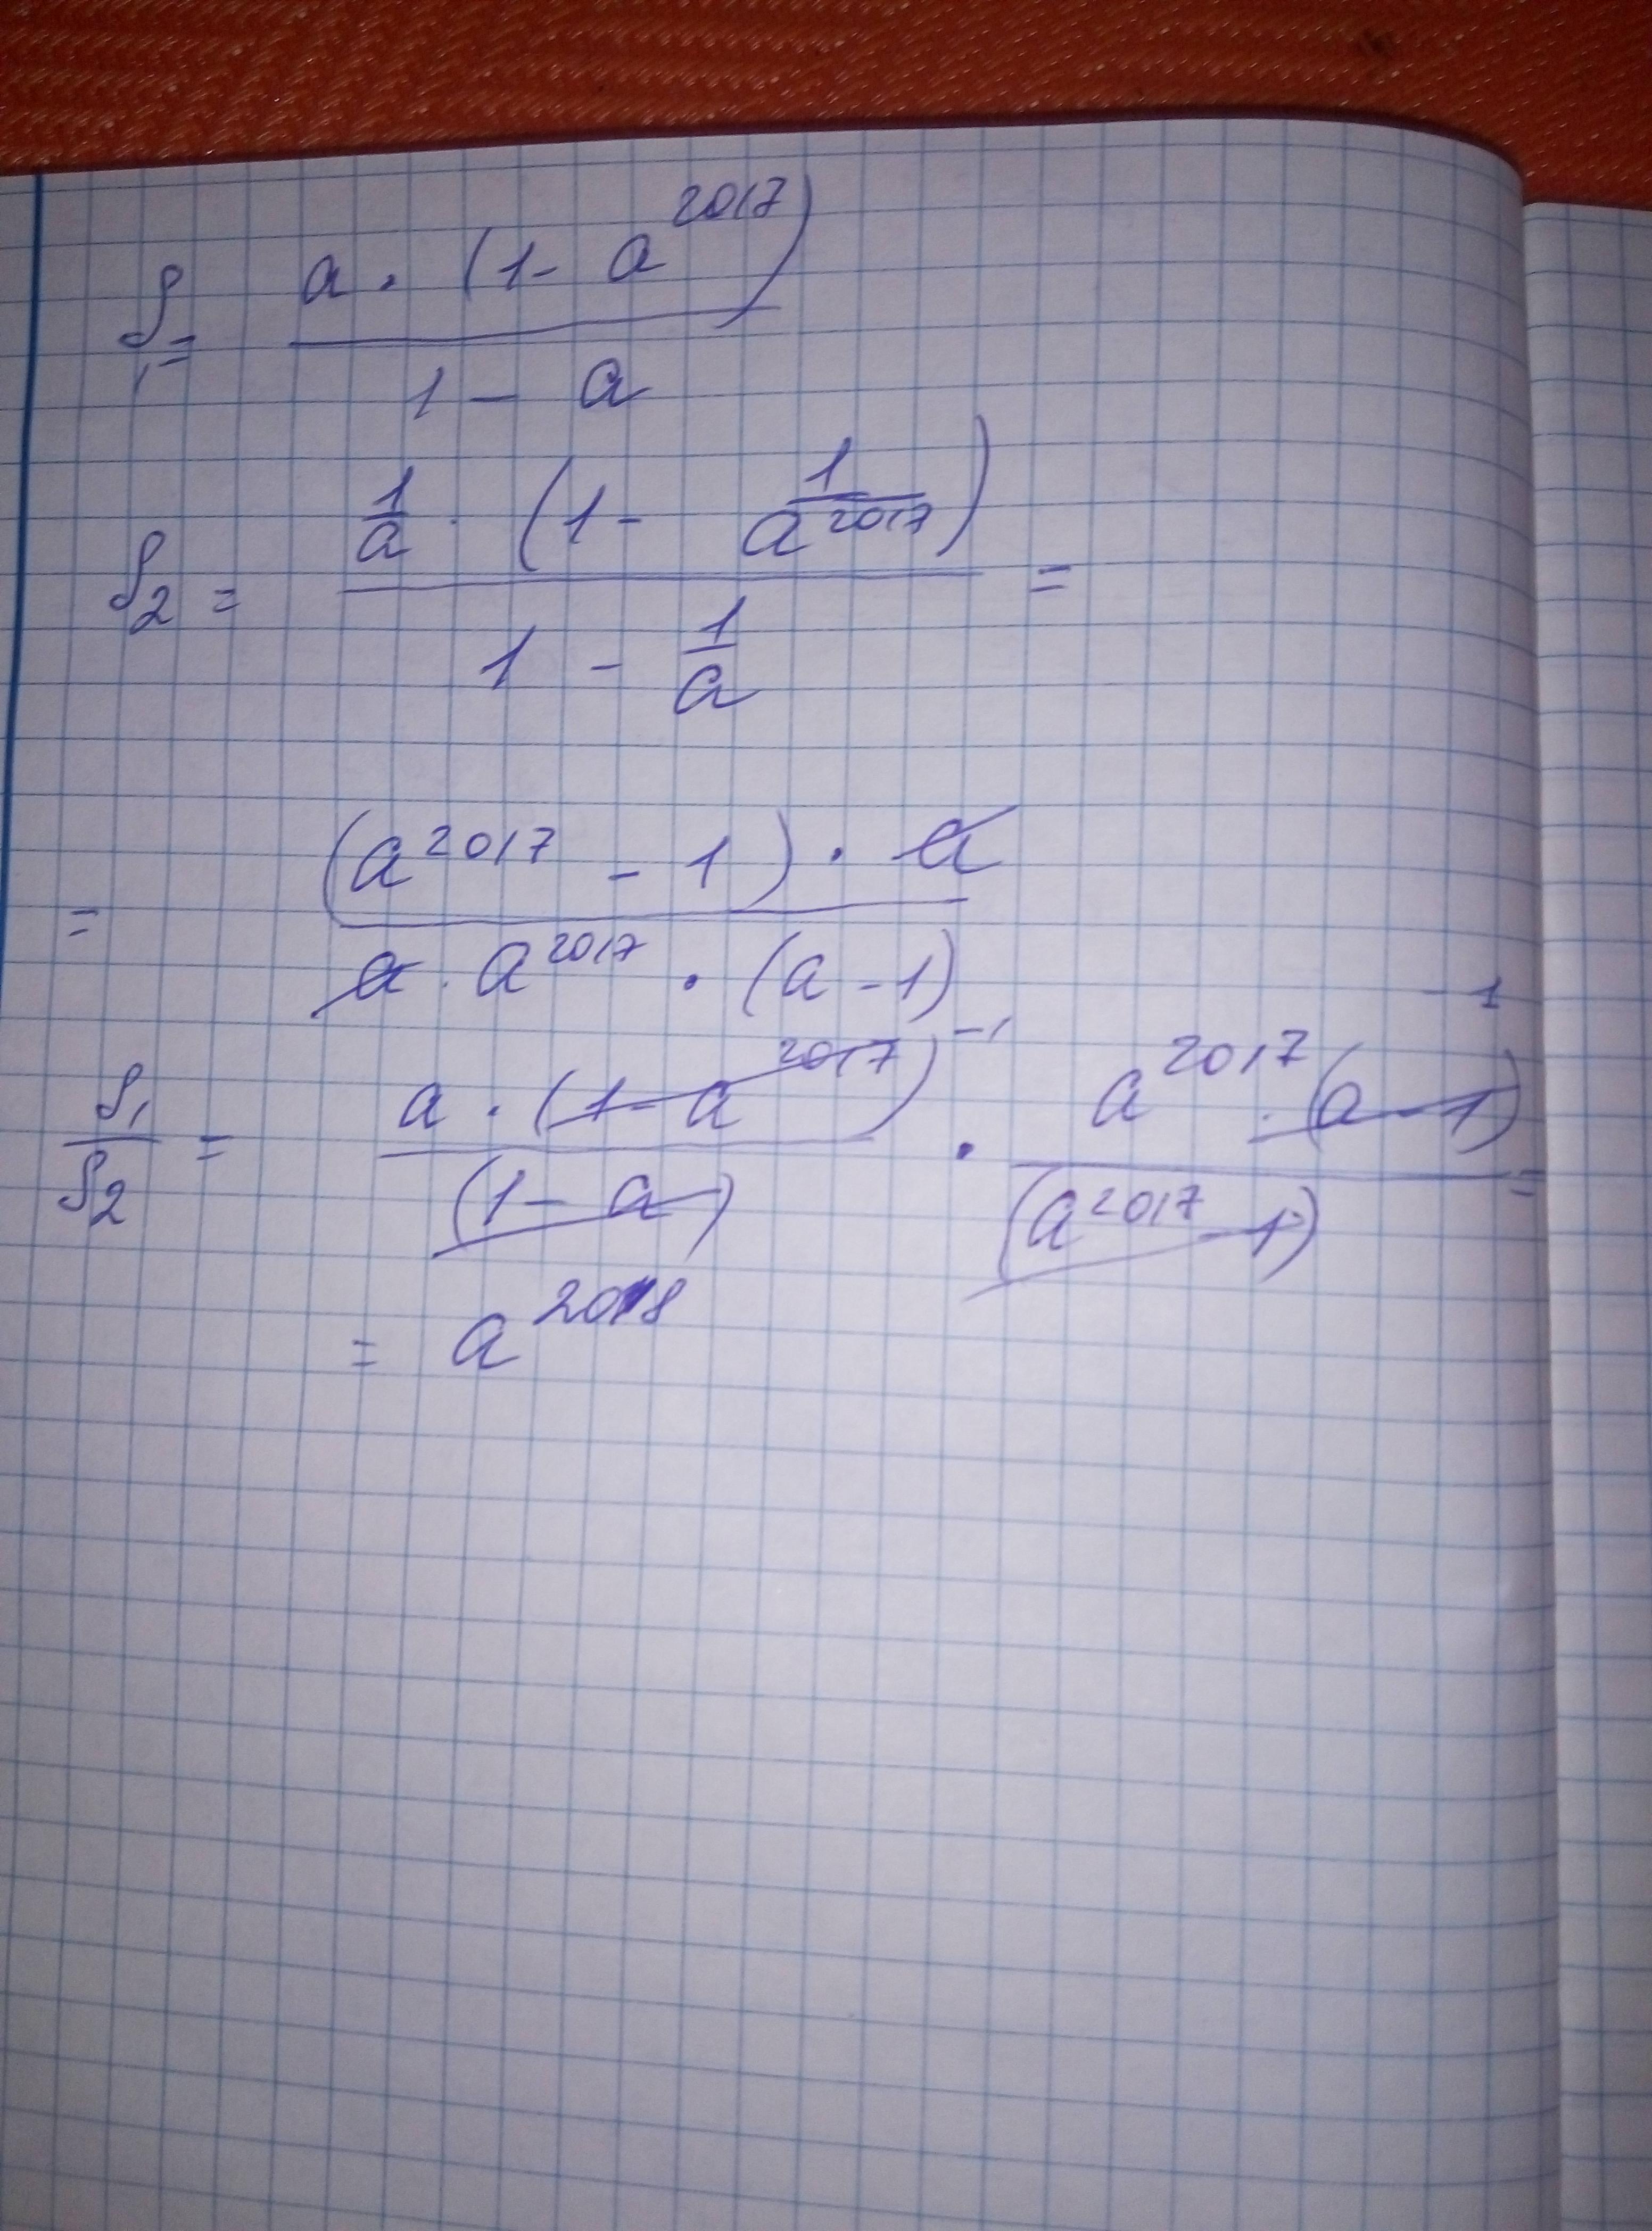 S₁ = a · (1 - a²⁰¹⁷) / 1 - a
S₂ = 1/a · (1 - 1/a²⁰¹⁷) / 1 - 1/a =
= (a²⁰¹⁷ - 1) · a / a · a²⁰¹⁷ · (a - 1)
S₁/S₂ = a · (1 - a²⁰¹⁷) -1 / (1 - a) · a²⁰¹⁷ · (a - 1) -1 / (a²⁰¹⁷ - 1) =
= a²⁰¹⁸